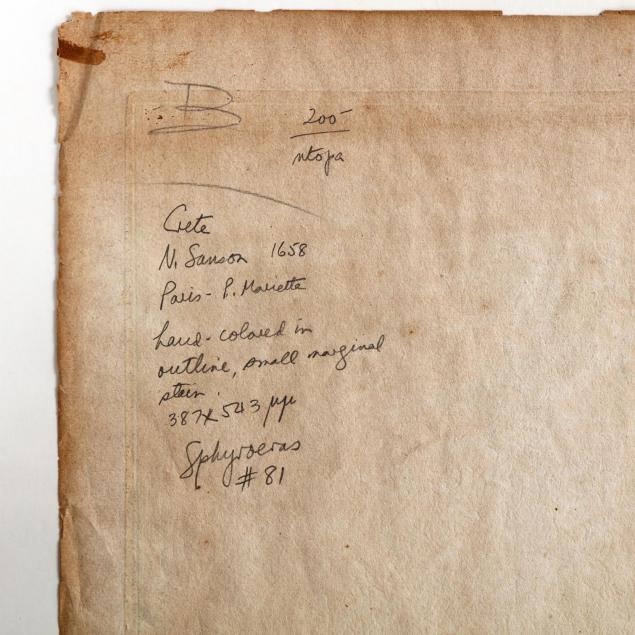 B
200-
ntopa
Crete
N. Sanson 1658
Paris - P. Mariette
hand-colored in
outline, small marginal
stain.
387X543 
Sphyroeras
#81